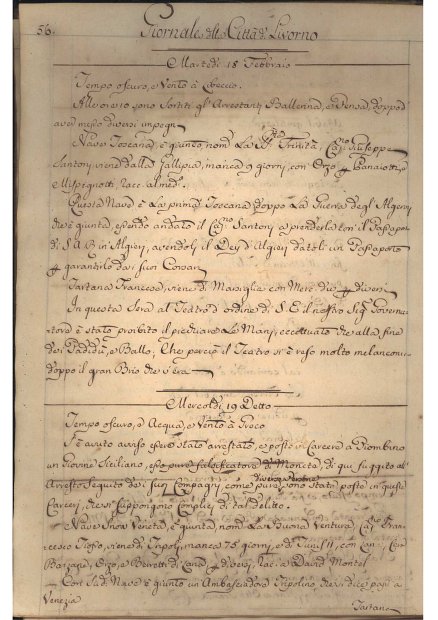 56.
Giornale della Città di Livorno
Martedì 18 Febbraio
Tempo oscuro, e Vento à Libeccio.
Alle ore 10 sono sortiti gl' Arrestanti Ballerina, e Pensa, doppo d'
aver messo diversi impegni
Nave Toscana, è giunta, nom.ta La SS. Trinità, Cap.no Giuseppe
Santoni, viene dalla Gallipia, manca 9 giorni, con Orzo
e
Questa Nave è La prima Toscana doppo La Guerra degl' Algerini
che è giunta, essendo andato il Cap.no Santoni a prenderla con il Passapo:
di S.A.R. in Algieri, avendoli il Dey d' Algieri datoli un Passaporto
garantirlo da i suoi Corsari
Tartana Francese, viene di Marsiglia con Merc. div.e diversi
In questa Sera al Teatro d' ordine di S.E. il nostro Sig. Governa:
tore è stato proibito il picchiare Le Mani, eccettuato che alla fine
dei Padidù, e Ballo, Che perciò il Teatro si è reso molto melanconico
doppo il gran Brio che v'era
Mercoldì 19 Detto
Tempo oscuro, e Acqua, e Vento à Greco
S' è avuto avviso essere stato arrestato, e posto in Carcere a Piombino
un Giovine Siciliano, esso pure falsificatore di Moneta, di qui fuggito al
diverse Persone
Arresto seguito dei suoi Compagni come pure sono state poste in queste
Carceri, che si suppongono Complici di tal delitto.
Nave Veneta, è giunta nom.ta La Buona Ventura, Cap.no Fran:
cesco viene di Tripoli, manca 75 giorni, e di Tunis 11, con
Orzo, e a David Montel
Con d.a Nave è giunto un Ambasciatore Tripolino che si dice passi a
Venezia
Tartana